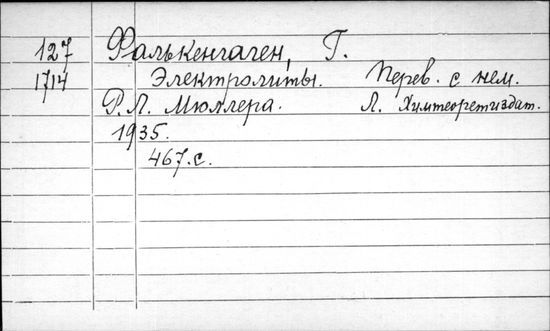 127 Фалькенгаген, Г.
1714 Электролиты. Перев. с нем.
Р.Л. Мюллера. Л. Химтеоретиздат.
1935.
467.с.